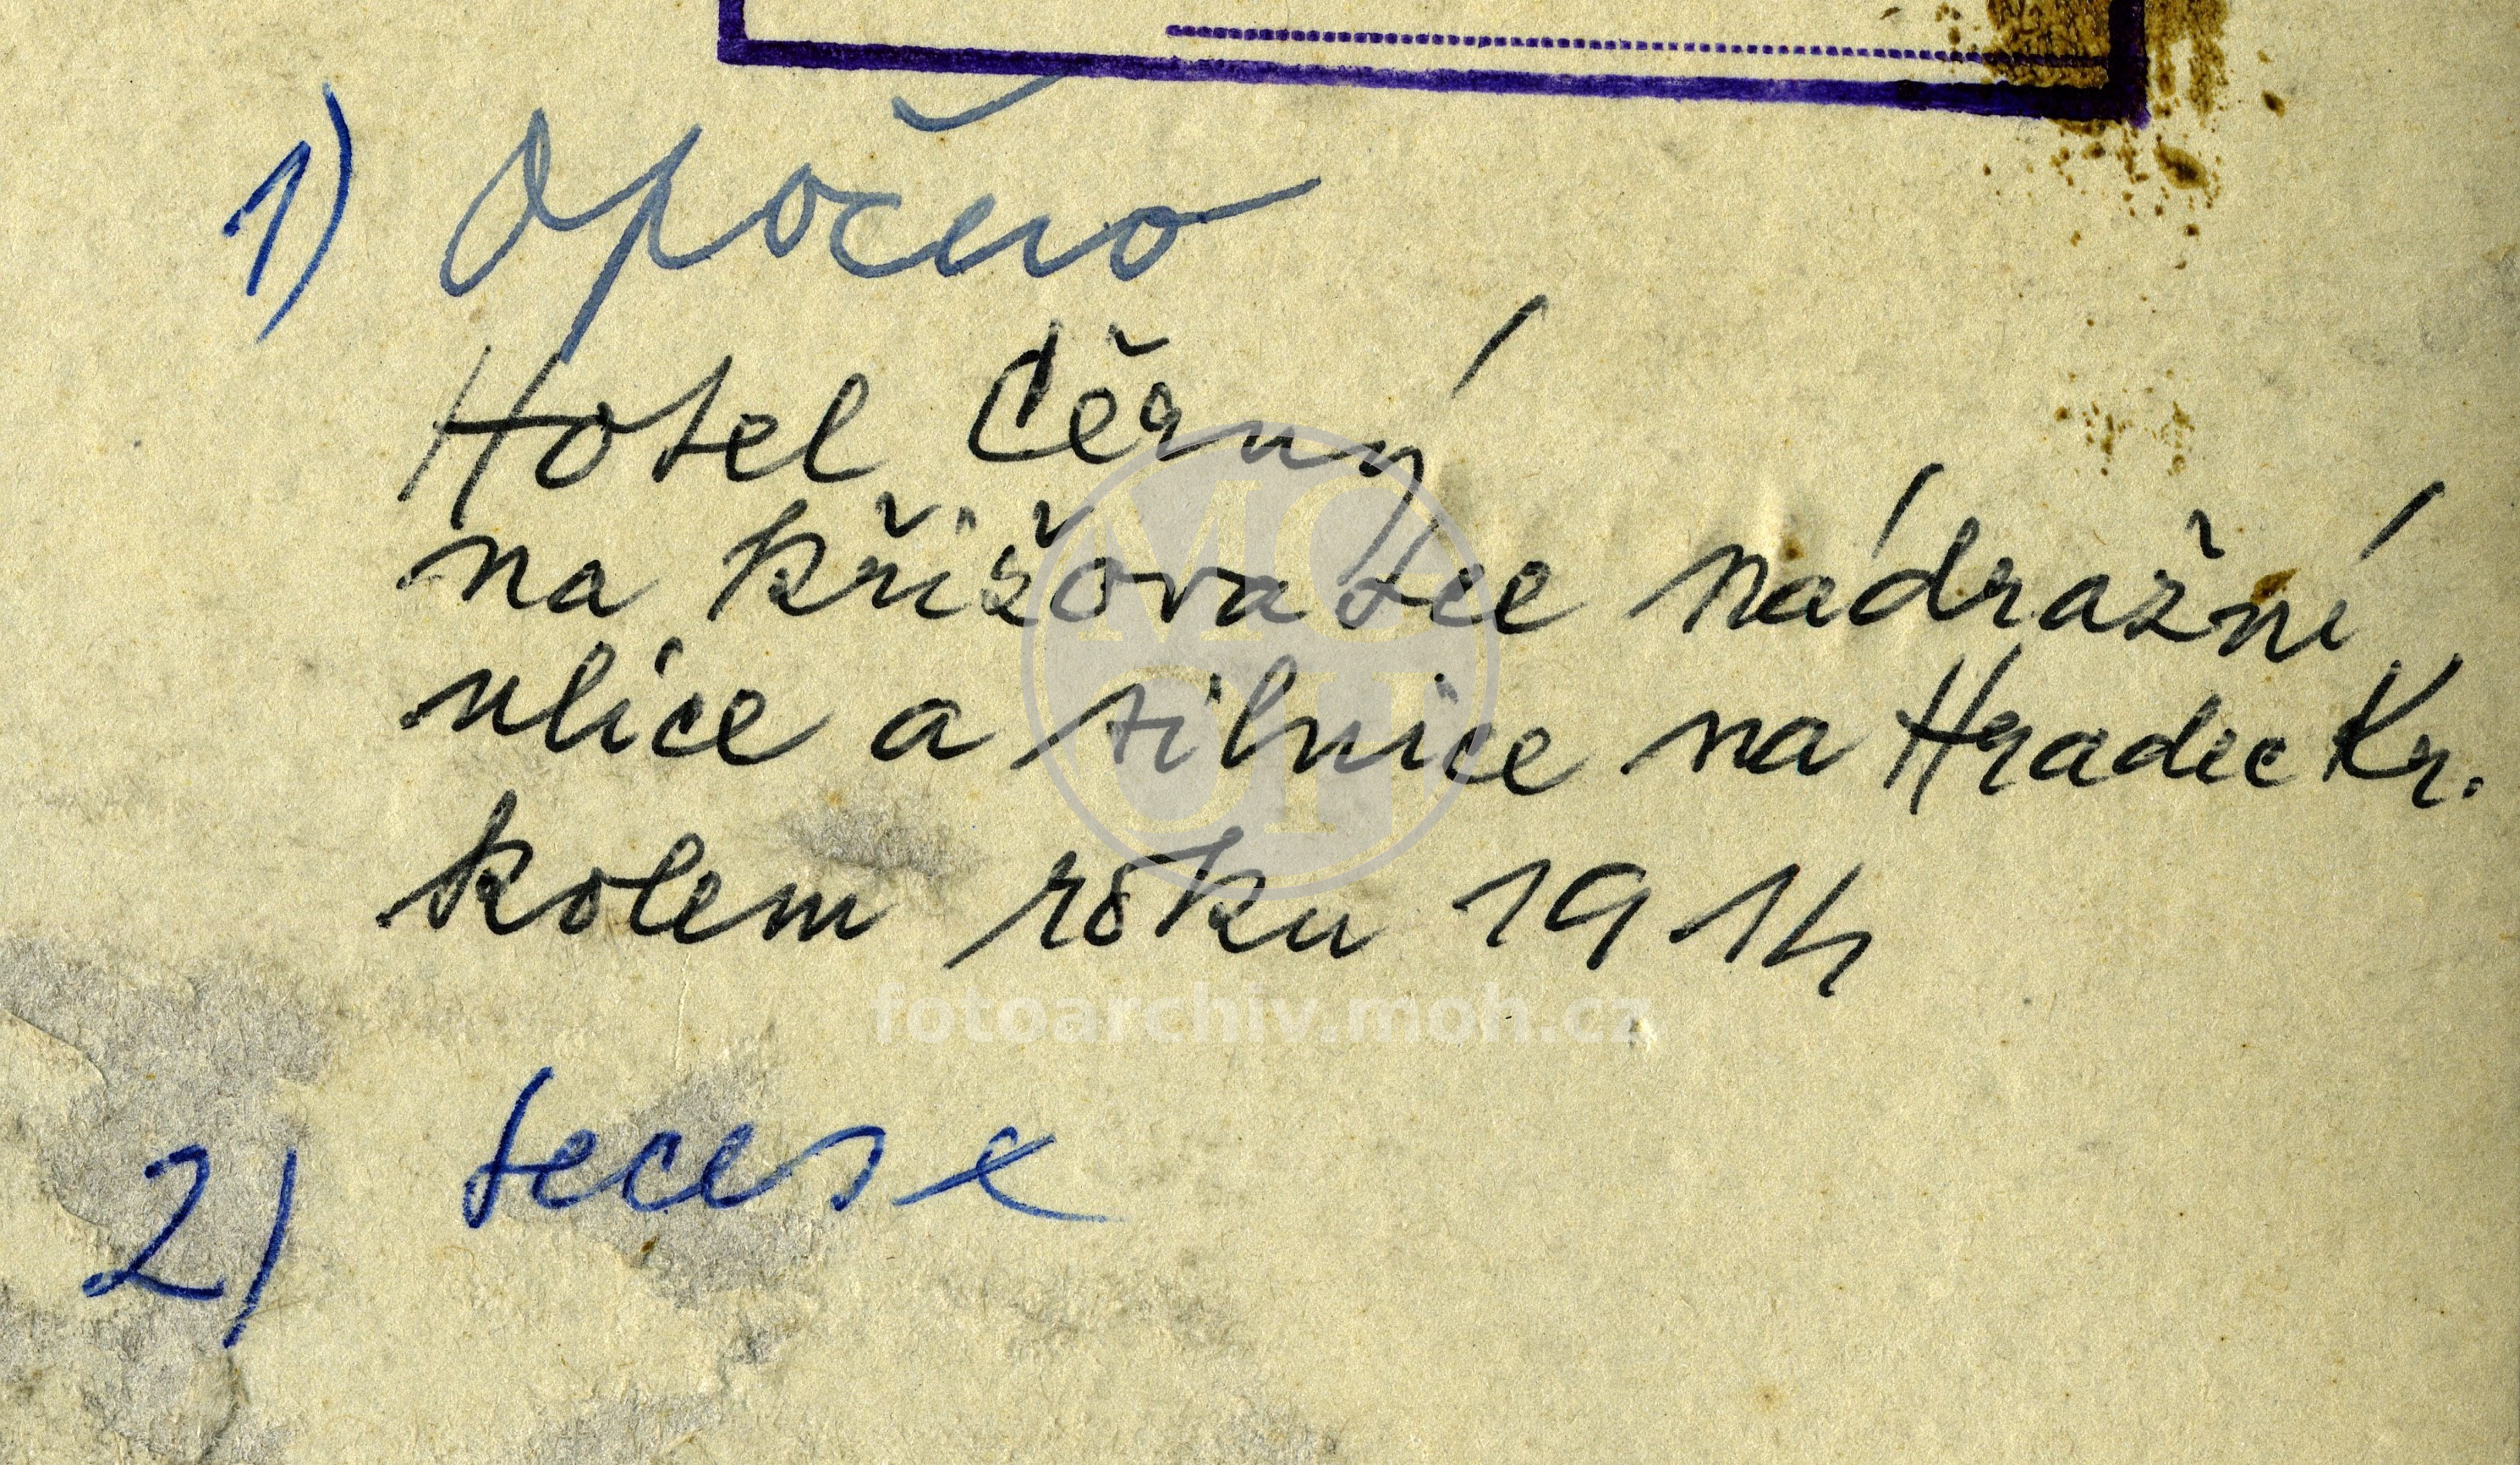 1) Opočno
Hotel Černý
na křižovatce nádražní
ulice a silnice na Hradec Kr.
kolem roku 1914
fotoarchiv.moh.cz
2) secese